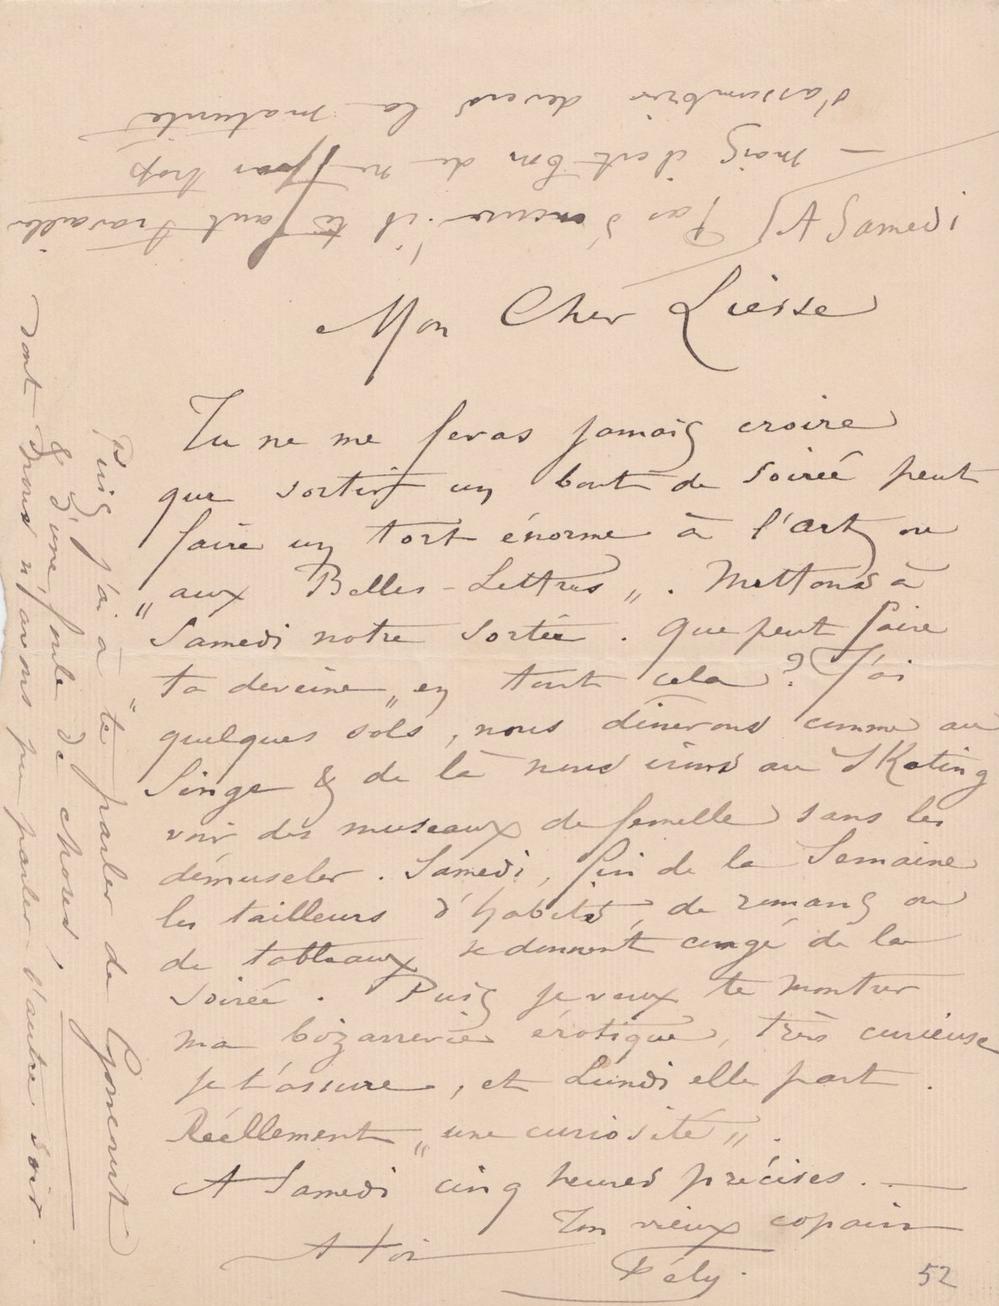 Mon Cher Liesse
Tu ne me feras jamais croire
que sortir un bout de soireé peut
faire un tort énorme à l'art ou
"aux Belles-Lettres". Mettons à
Samedi notre sortée. Que peut faire
ta deveine" en tout cela? J'ai
quelques sols, nous dînerons comme au
Singe & de là nous irons au Skating
voir des museaux de femelle sans les
démuseler. Samedi, fin de la Semaine
les tailleurs d'habits, de romans ou
de tableaux se donnent congé de la
soireé. Puis je veux te montrer
ma bizarrerie érotique, très curieuse
je t'assure, et Lundi elle part.
Réellement "une curiosité".
A Samedi cinq heures précises. —
Ton vieux copain
A toi
Fély.
52
Puis j'ai à te parler de Goncourt
& d'une foule de choses,
dont nous n'avons pu parler l'autre soir.
A Samedi
Pas d'encre! il te faut travailler
— mais il est bon de ne pas trop
s'assombrir devers la maturité